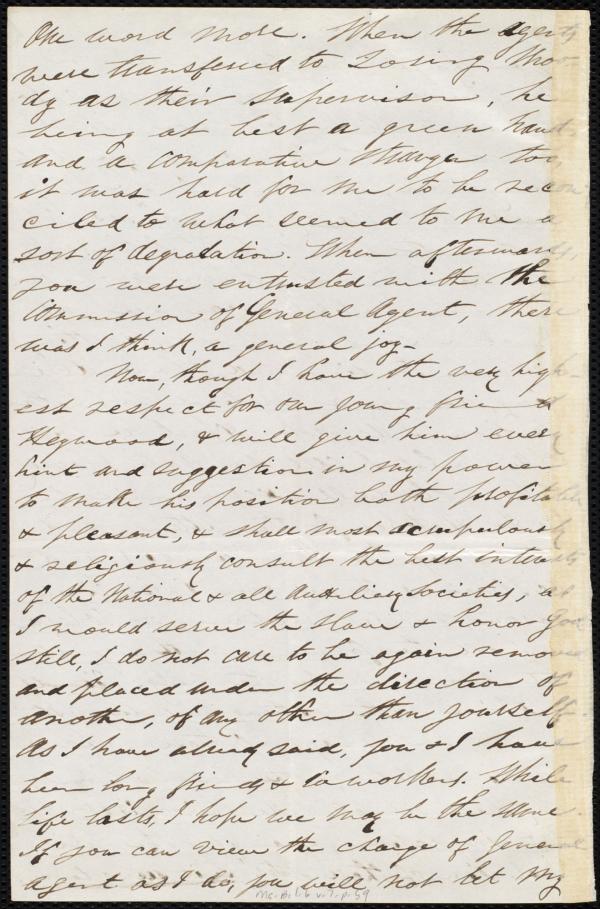 One word more. When the agents
were transferred to Loring Moo-
dy as their supervisor, he
being at best a green hand,
and a comparative stranger too,
it was hard for me to be recon
ciled to what seemed to me a
sort of degradation. When afterwards,
you were entrusted with the
Commission of General Agent, there
was I think, a general joy-
Now, though I have the very high-
est respect for our young friend
Heywood, & will give him every
hint and suggestion in my power
to make his position both profitable
& pleasant, & shall most scrupulously
& religiously consult the best interests
of the National & all Auxiliary Societies, as
I would serve the slave & honor God
still, I do not care to be again removed
and placed under the direction of
another, of any other than yourself.
As I have already said, you & I have
been long friends & co workers. While
life lasts, I hope we may be the same.
If you can view the charge of General
Agent as I do, you will not let my
Ms.A.1.6 v.7, p.59